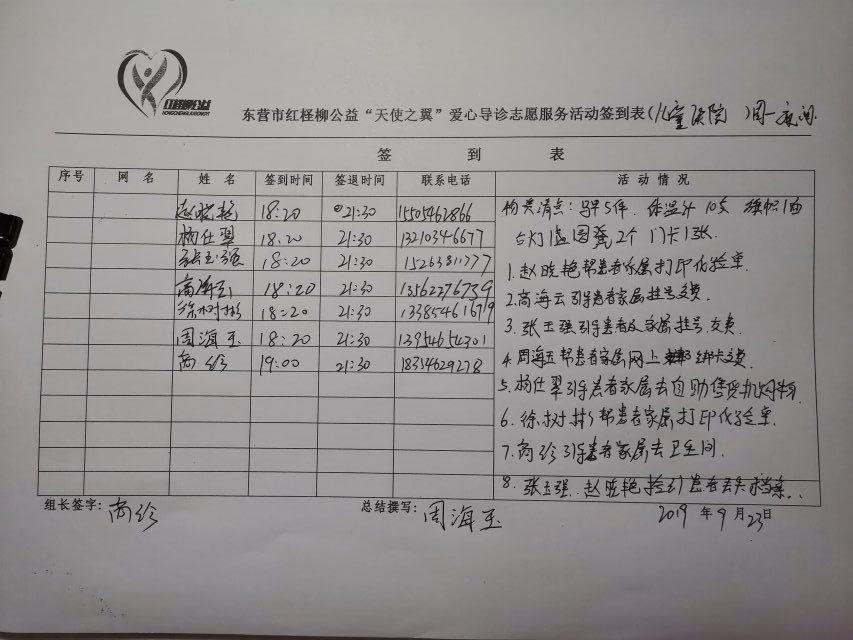 红柽柳公益
东营市红柽柳公益“天使之翼”爱心导诊志愿服务活动签到表(儿童医院 )周一夜间
签 到 表
序号 网 名 姓 名 签到时间 签退时间 联系电话 活 动 情 况
赵晓艳 18:20 21:30 15505462866
杨仕翠 18:20 21:30 13210346677
张玉强 18:20 21:30 15263811777
高海云 18:20 21:30 13562276739
徐树彬 18:20 21:30
周海玉 18:20 21:30 13954654301
尚珍 19:00 21:30 18354629278
物资清点:马甲5件. 体温计10支 旗帜1面
台灯1盏 2个 门卡1张.
1.赵晓艳帮患者家属打印化验单
2.高海云引导患者家属挂号交费.
3.张玉强引导患者及家属挂号交费.
4.周海玉帮患者家属网上绑卡交费
5.杨仕翠引导患者家属去自助售货机购物
6.徐树彬帮患者家属打印化验单.
7.尚珍引导患者家属去卫生间.
8.张玉强.赵晓艳捡到患者丢失档案.
组长签字:尚珍 总结撰写:周海玉 2019年9月23日